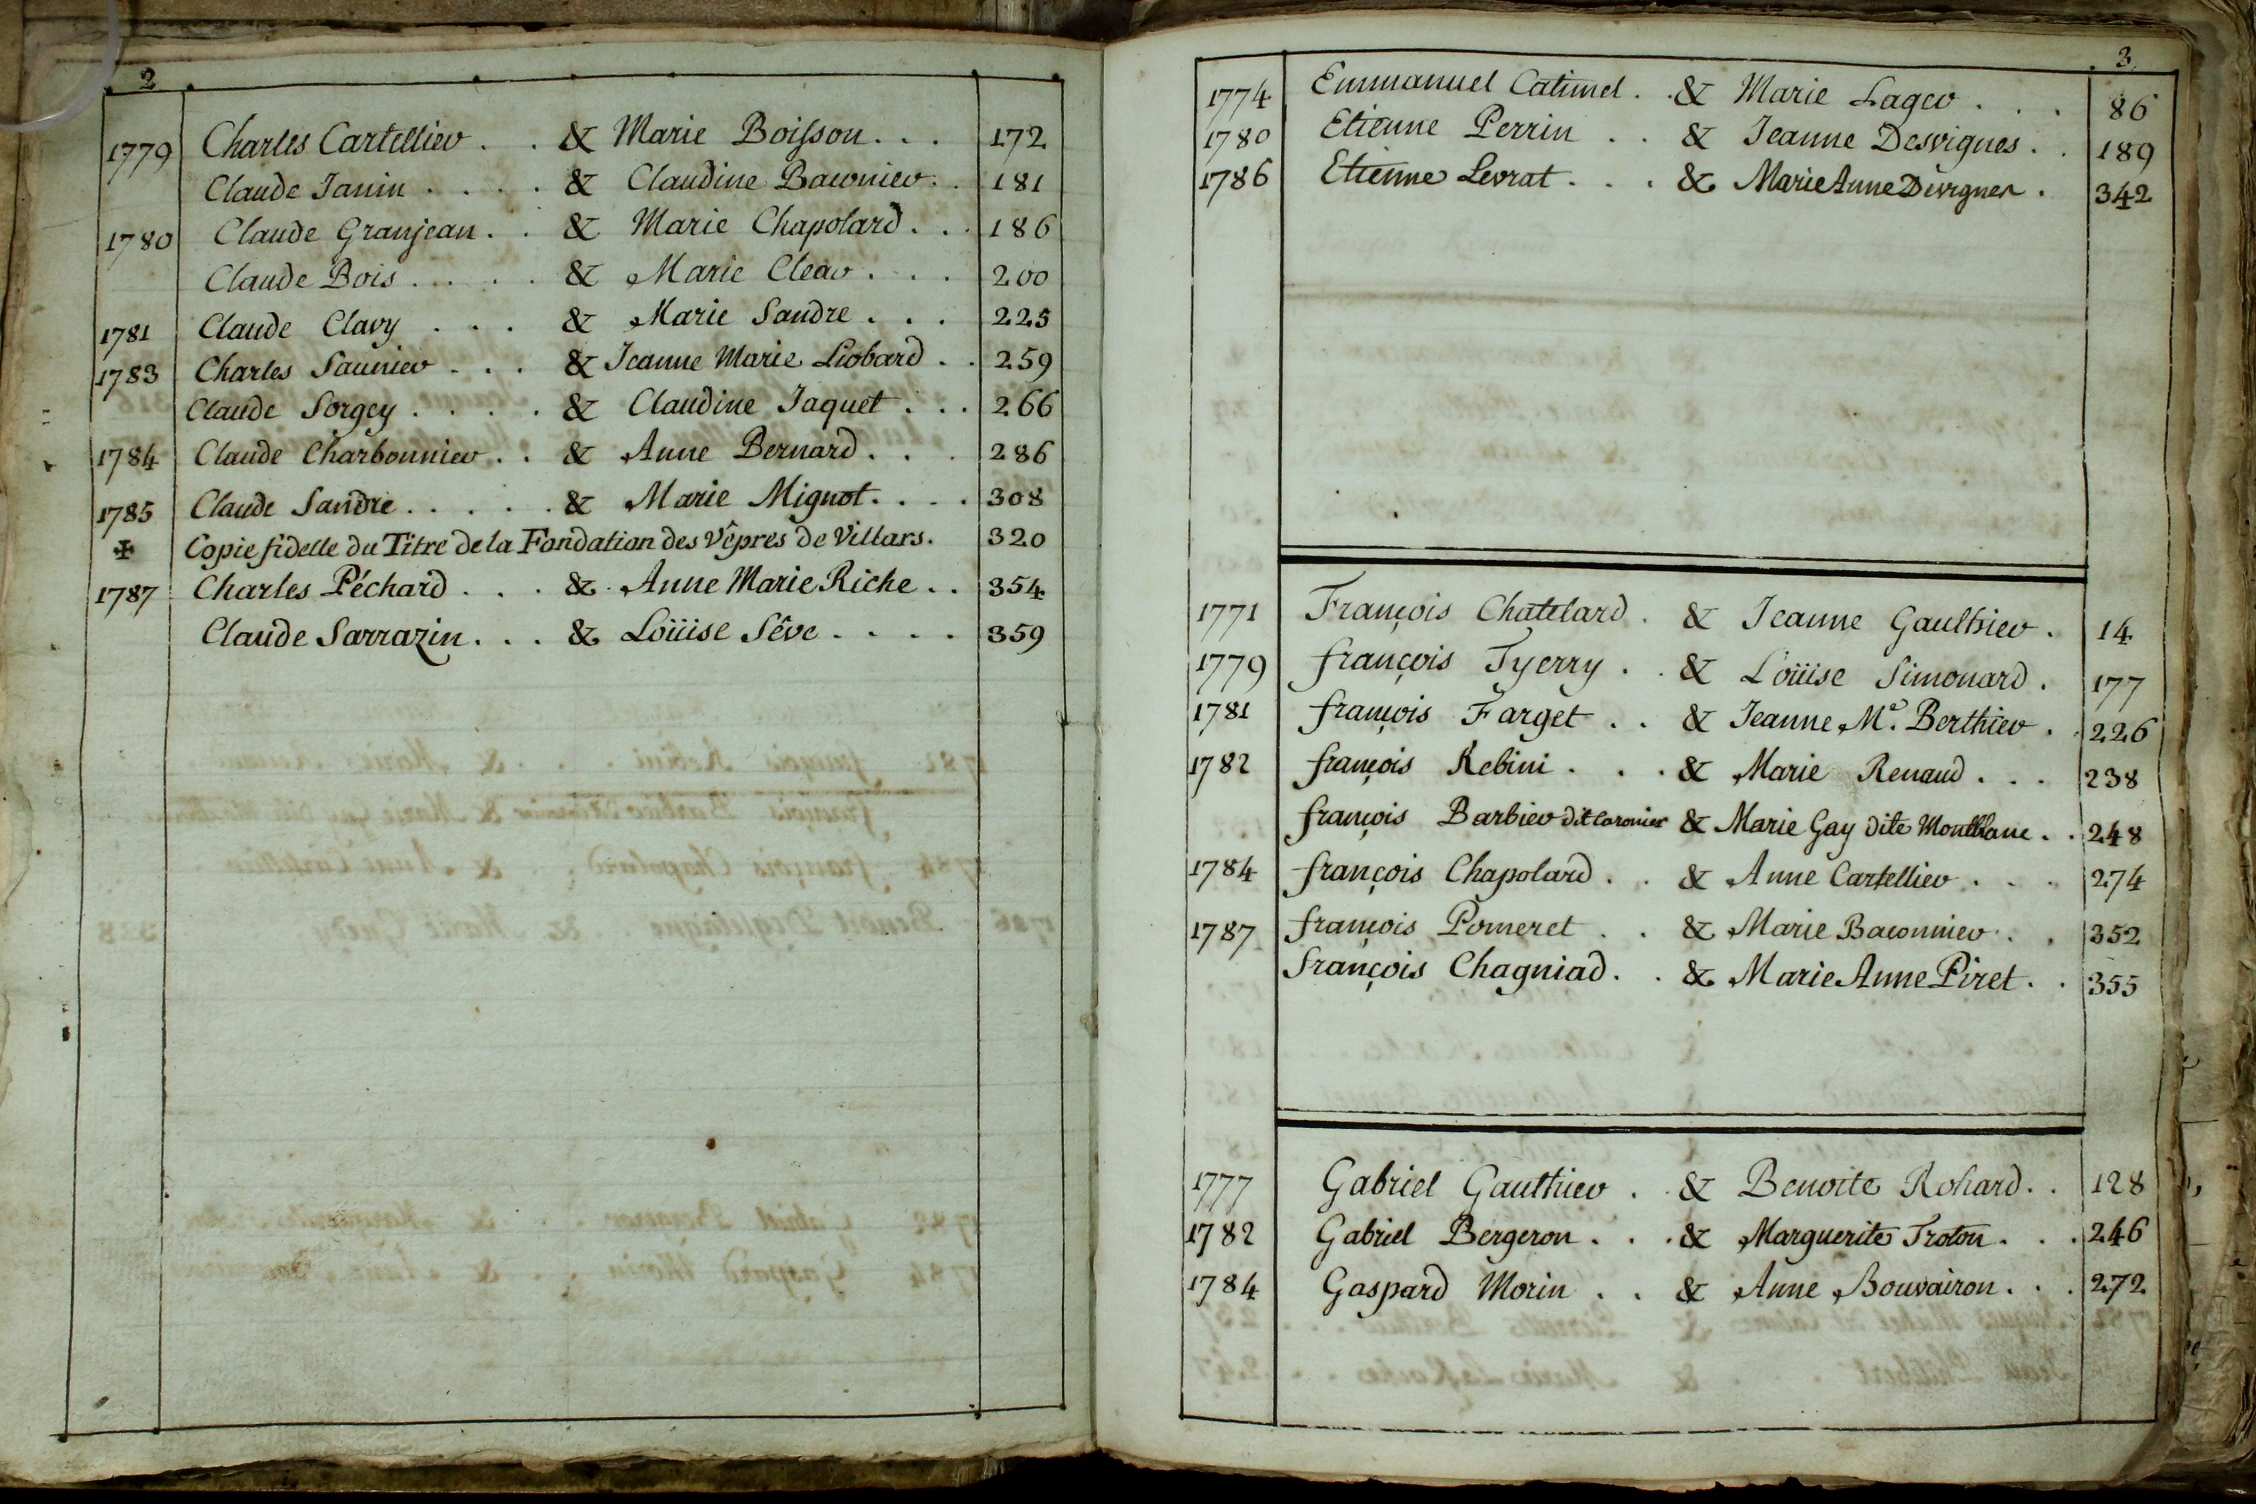 2
1779 Charles Cartellier . . & Marie Boisson . . . 172
Claude Janin . . . . & Claudine Baconnier . . 181
1780 Claude Granjean . . & Marie Chapolard . . . 186
Claude Bois . . . . & Marie Clear . . . 200
1781 Claude Clavy . . . & Marie Sandre . . . 225
1783 Charles Saunier . . . & Jeanne Marie Liobard . . 259
Claude Sorgey . . . . & Claudine Jaquet . . . 266
1784 Claude Charbonnier . . & Anne Bernard . . . 286
1785 Claude Sandre . . . . . & Marie Mignot . . . . 308
✠ Copie fidelle du Titre de la Fondation des Vêpres de Villars. 320
1787 Charles Péchard . . . & Anne Marie Riche . . 354
Claude Sarrazin . . . & Loüise Sêve . . . . 359
3
1774 Emmanuel Catimel . . & Marie Lager . . . 86
1780 Etienne Perrin . . & Jeanne Desvignes . . 189
1786 Etienne Levrat . . . & Marie Anne Devignes . 342
1771 François Chatelard . & Jeanne Gaulthier . 14
1779 françois Tyerry . . & Loüise Simonard . 177
1781 françois Farget . . & Jeanne Me. Berthier . . 226
1782 françois Rebini . . . & Marie Renaud . . . 238
françois Barbier dit & Marie Gay dite Montblanc . . 248
1784 françois Chapolard . . & Anne Cartellier . . . 274
1787 françois Pomeret . . & Marie Baconnier . . 352
françois Chagniad . . & Marie Anne Piret . . 355
1777 Gabriel Gauthier . . & Benoite Rohard . . 128
1782 Gabriel Bergeron . . . & Marguerite Troton . . . 246
1784 Gaspard Morin . . & Anne Bouvairon . . . 272